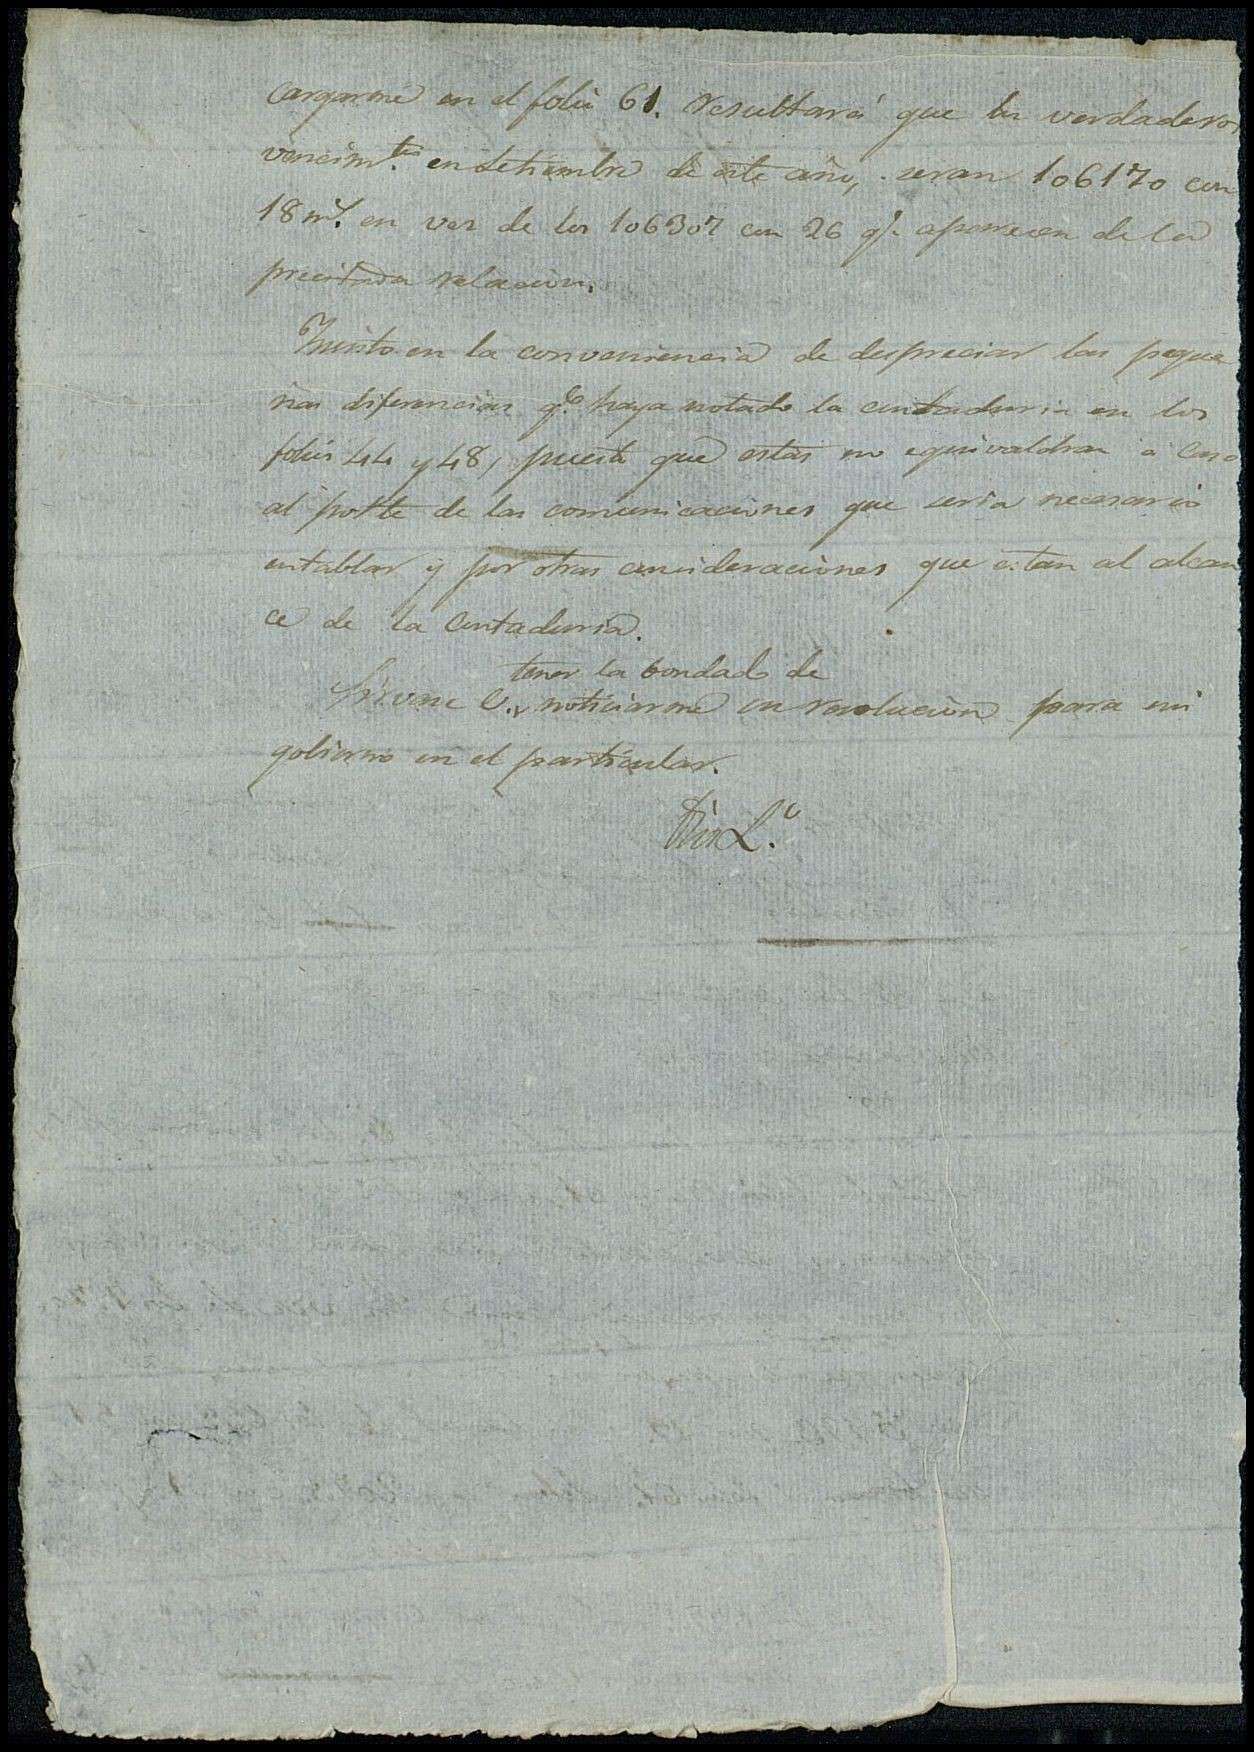 cargarme en el folio 61. resultará que los verdaderos
vencim.tos en Setiembre de este año, seran 106170 con
18 m.s en vez de los 106307 con 26 q.e aparecen de la
precitada relacion.
Insisto en la conveniencia de despreciar las peque
ñas diferencias q.e haya notado la contaduria en los
folios 44 y 48, puesto que estas no equivaldran a caso
al porte de las comunicaciones que seria necesario
entablar y por otras consideraciones que estan al alcan
ce de la contaduria.
tener la bondad de
Sirvase V. noticiarme su resolucion para mi
gobierno en el particular.